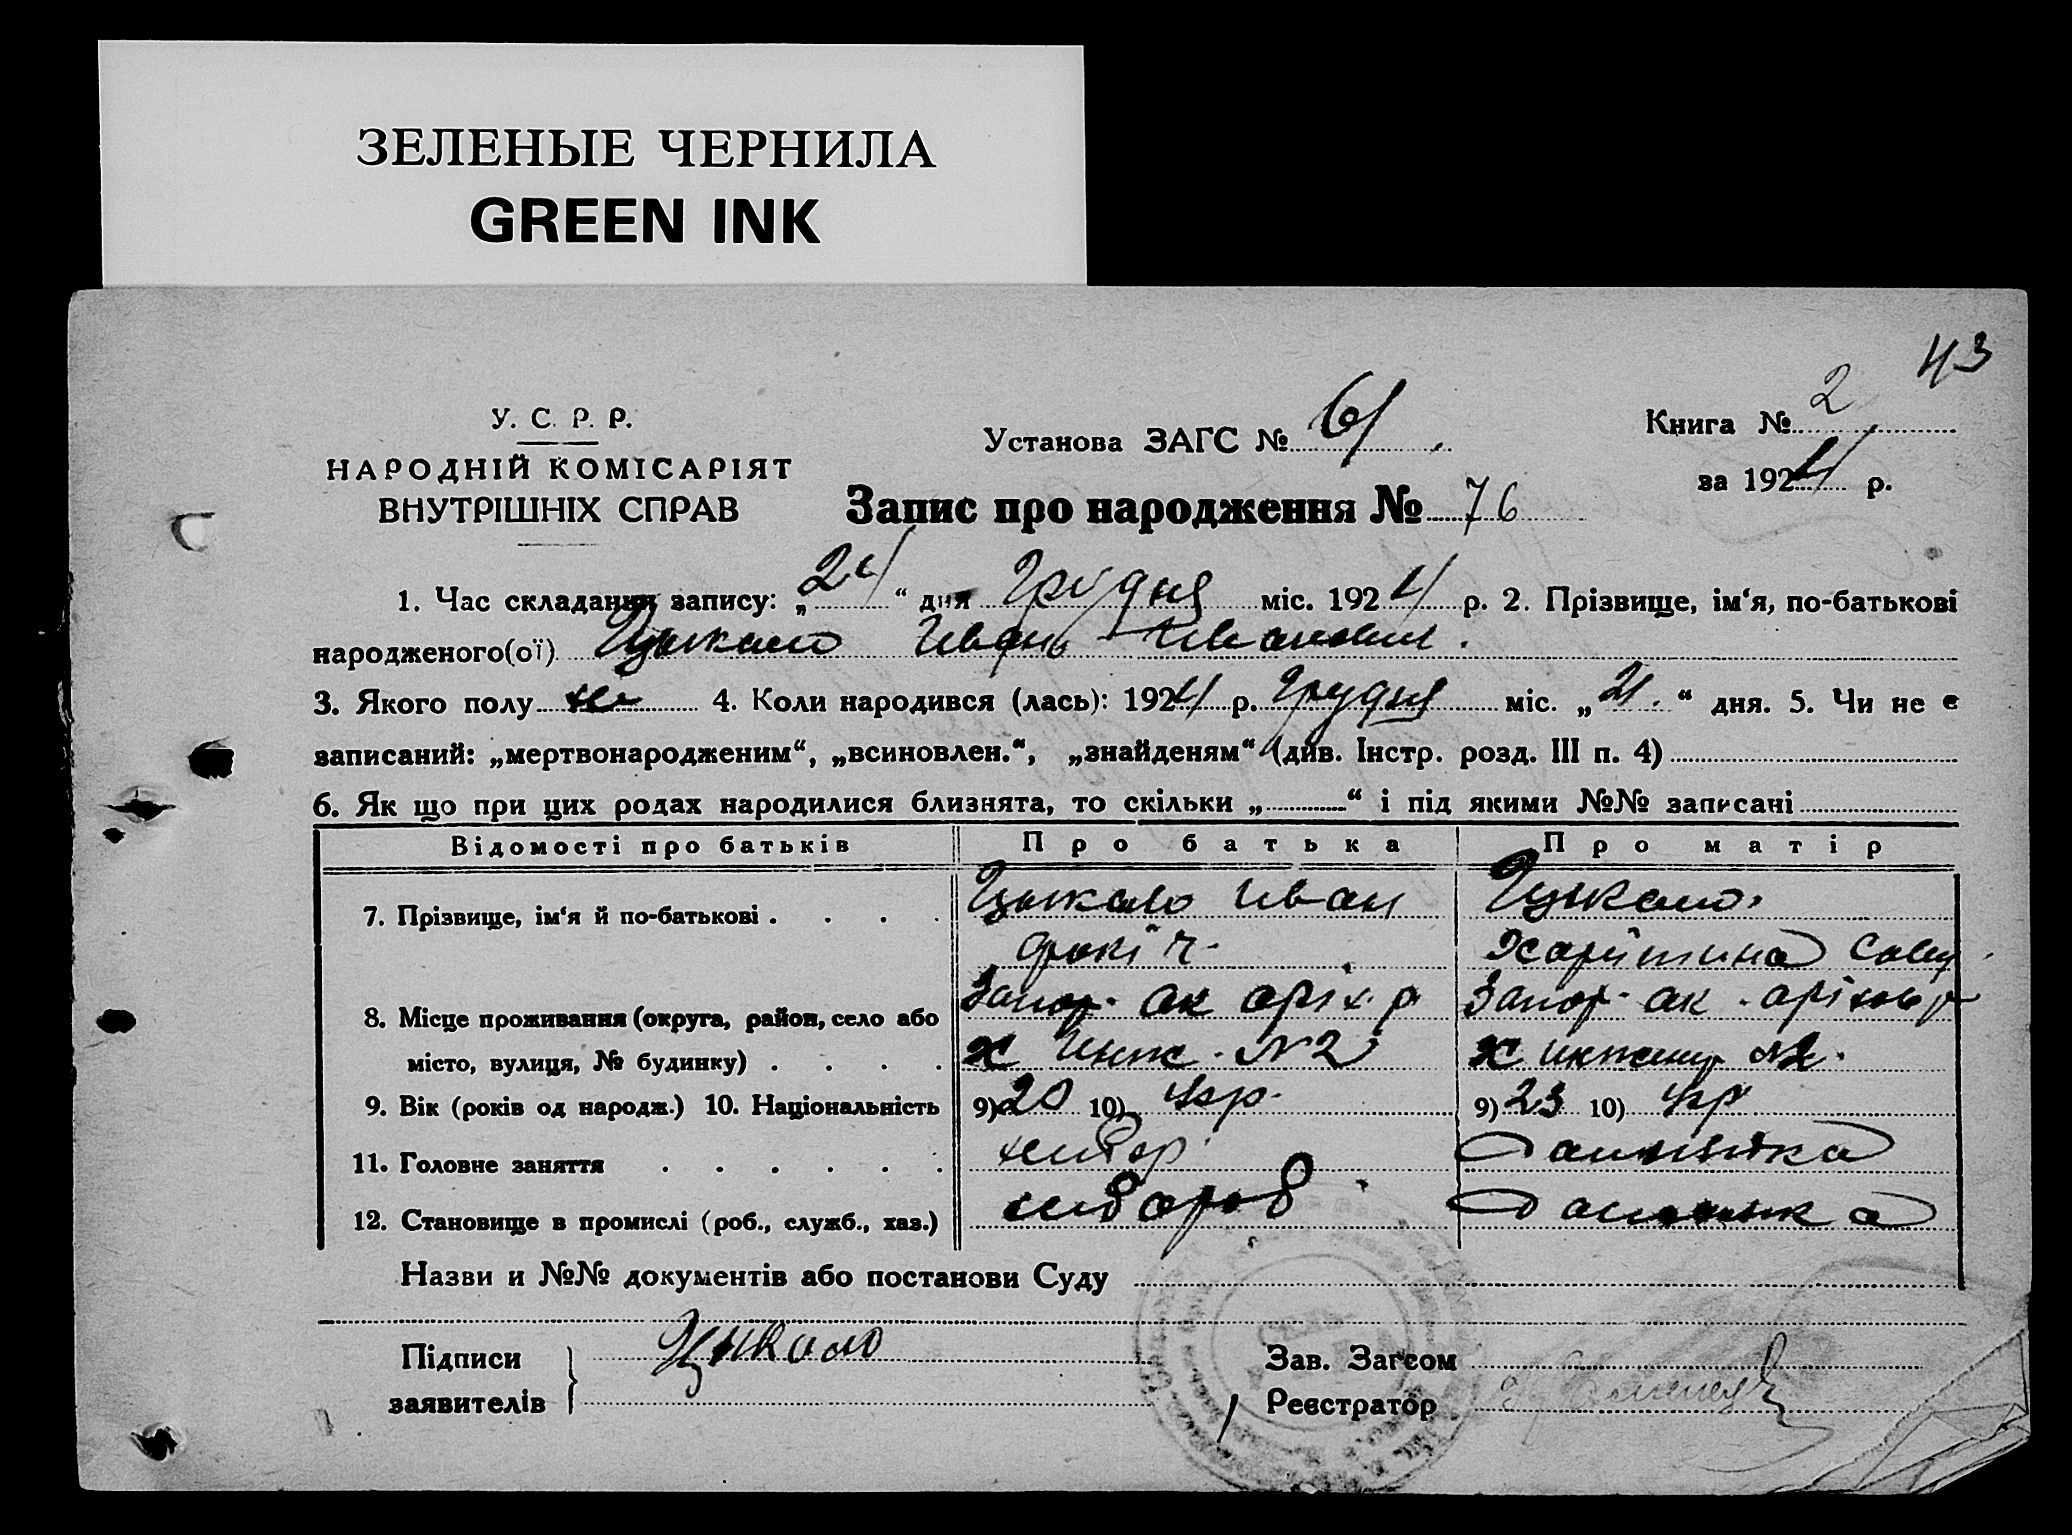 ЗЕЛЕНЫЕ ЧЕРНИЛА
GREEN INK
43
У. С. Р. Р.
НАРОДНІЙ КОМІСАРІЯТ
ВНУТРІШНІХ СПРАВ
Установа ЗАГС № 61
Книга № 2
за 1924 р.
Запис про народження № 76
1. Час складання запису: „24“ дня Грудня міс. 1924 р. 2. Прізвище, ім‘я, по-батькові
народженого(ої) Цыкало Иван Иванович.
3. Якого полу 4. Коли народився (лась): 1924 р. Грудня міс. „21.“ дня. 5. Чи не є
записаний: „мертвонародженим“, „всиновлен.“, „знайденям“ (див. Інстр. розд. III п. 4)
6. Як що при цих родах народилися близнята, то скільки „ “ і під якими №№ записані
Відомості про батьків Про батька Про матір
7. Прізвище, ім‘я й по-батькові . . . . Цыкало Иван Цыкало.
Фокіч. Харітина Савы
8. Місце проживання (округа, район, село або Запор. ок оріх. р Запор. ок. оріхов р
місто, вулиця, № будинку) . . . . х Инж. №2 х №2.
9. Вік (років од народж.) 10. Національність 9) 20 10) Укр. 9) 23 10) Укр
11. Головне заняття . . . . . .
12. Становище в промислі (роб., служб., хаз.)
Назви и №№ документів або постанови Суду
Підписи Цикало Зав. Загсом
заявителів Реєстратор